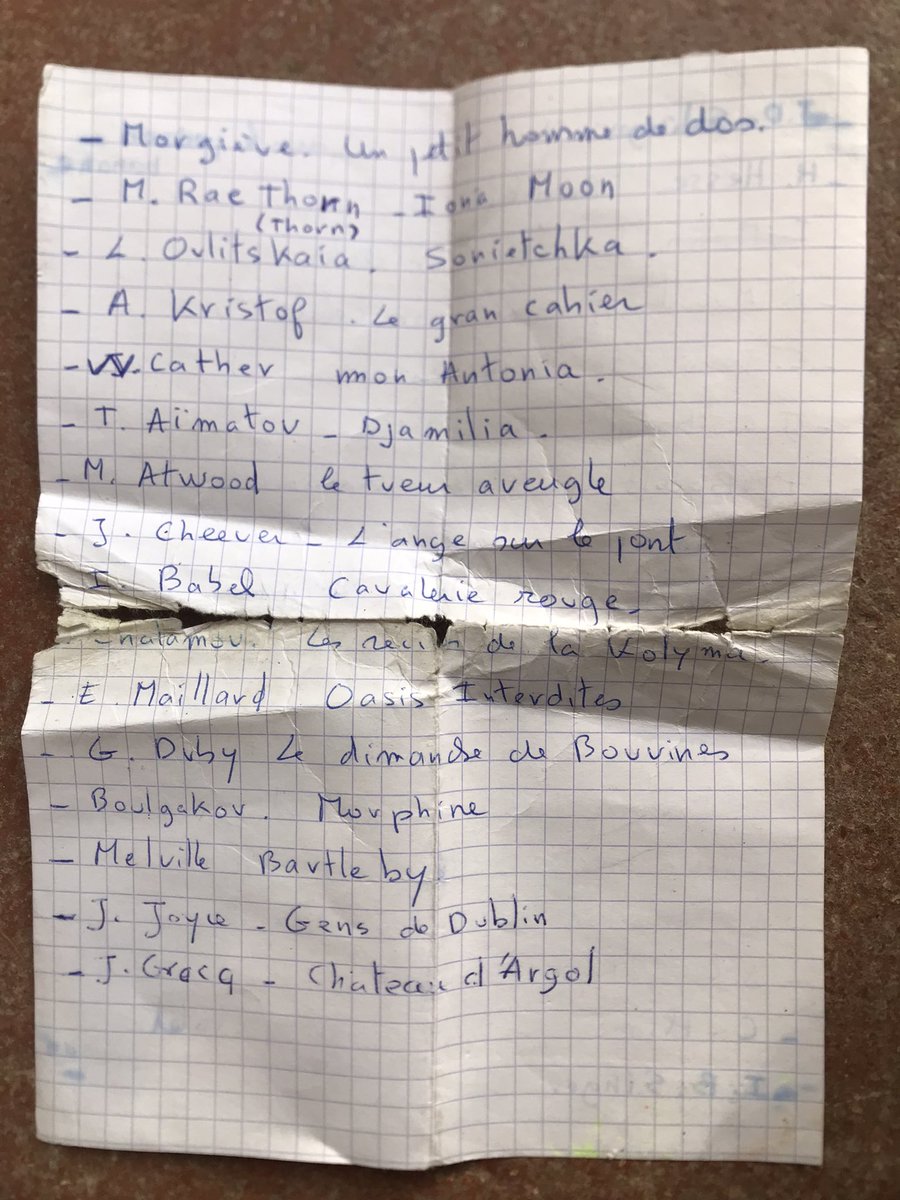 - Morgiève. Un petit homme de dos.
- M. Rae Thorn - Iona Moon
(Thorn)
- L. Oulitskaia. Sonietchka.
- A. Kristof. Le gran cahier
- W. Cather mon Antonia.
- T. Aïmatov - Djamilia.
- M. Atwood le tueur aveugle
- J. Cheever - L'ange sur le pont
- I. Babel Cavalerie rouge.
Les recits de la Kolyma.
- E. Maillard Oasis Interdites
- G. Duby Le dimanche de Bouvines
- Boulgakov. Morphine
- Melville Bartleby
- J. Joyce - Gens de Dublin
- J. Gracq - Chateau d'Argol